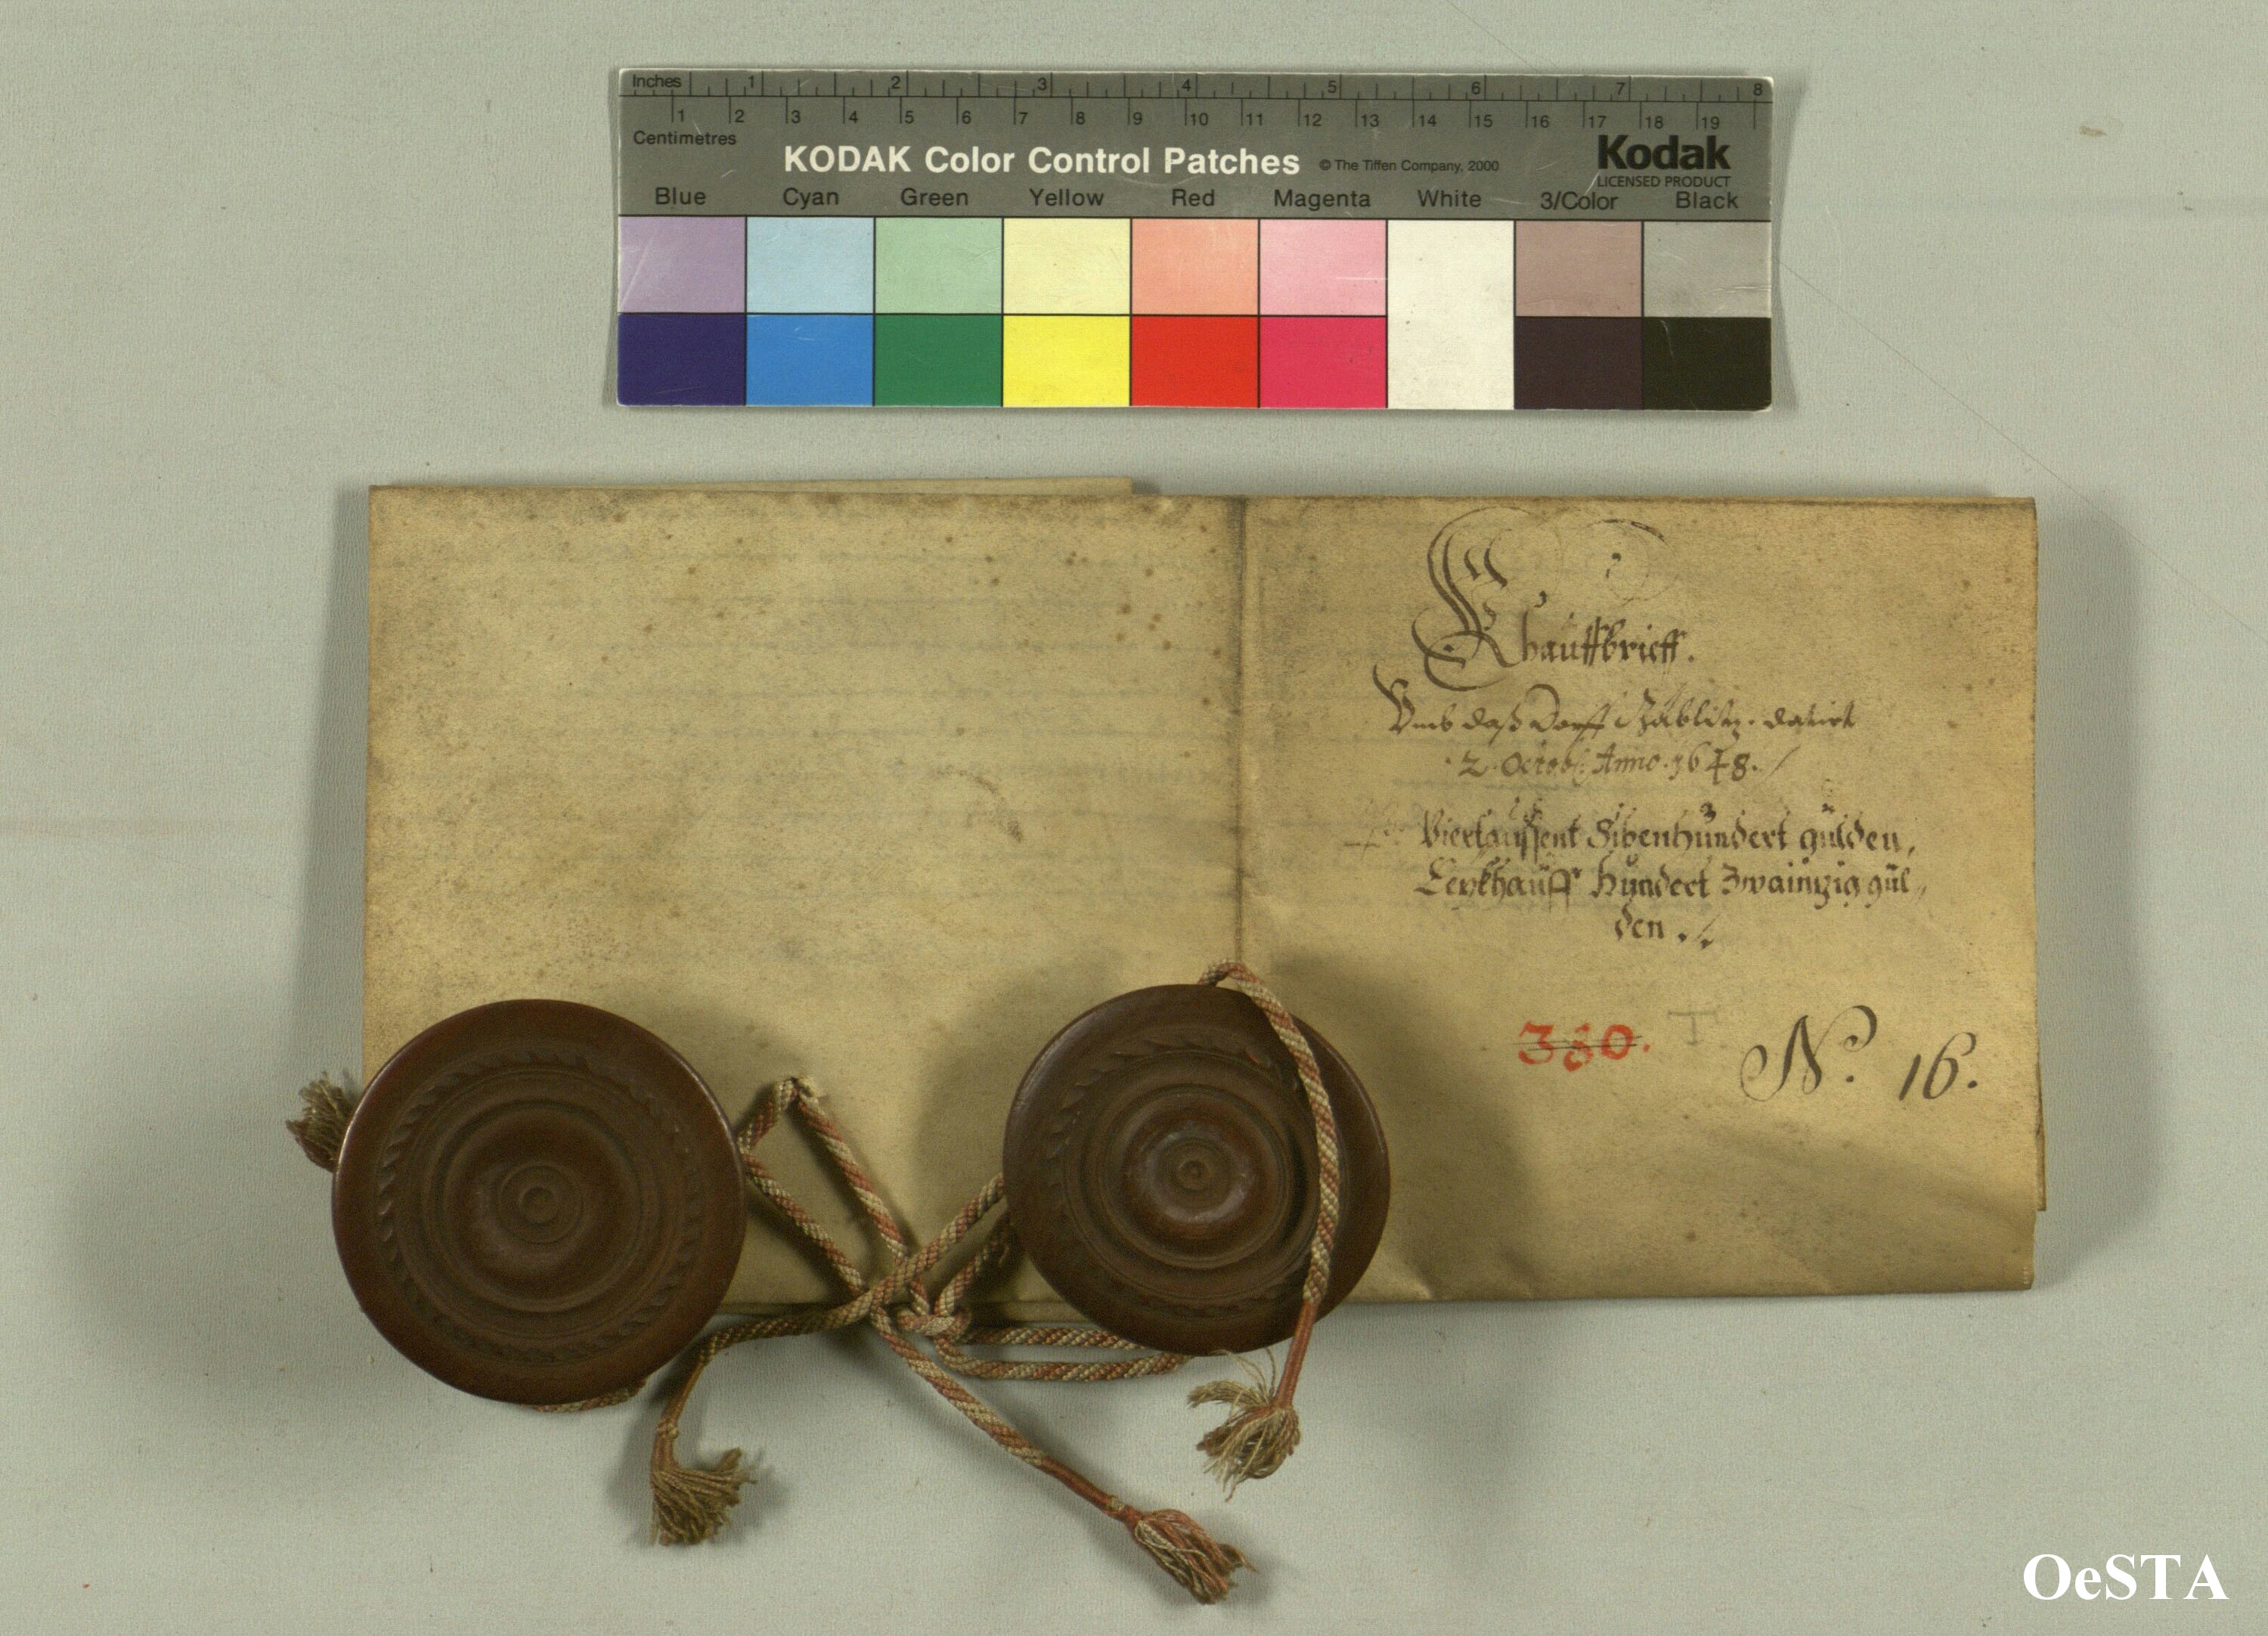 Inches 1 2 3 4 5 6 7 8
1 2 3 4 5 6 7 8 9 10 11 12 13 14 15 16 17 18 19
Centimetres
KODAK Color Control Patches © The Tiffen Company, 2000 Kodak
LICENSED PRODUCT
Blue Cyan Green Yellow Red Magenta White 3/Color Black
Khauffbrieff.
Vmb daß Dorff datirt
2. Octob: Anno. 1648.
Viertaussent Sibenhundert gulden,
Leykhauff hundert Zwaintzig gul,
den
380.
T
N.º 16.
OeSTA